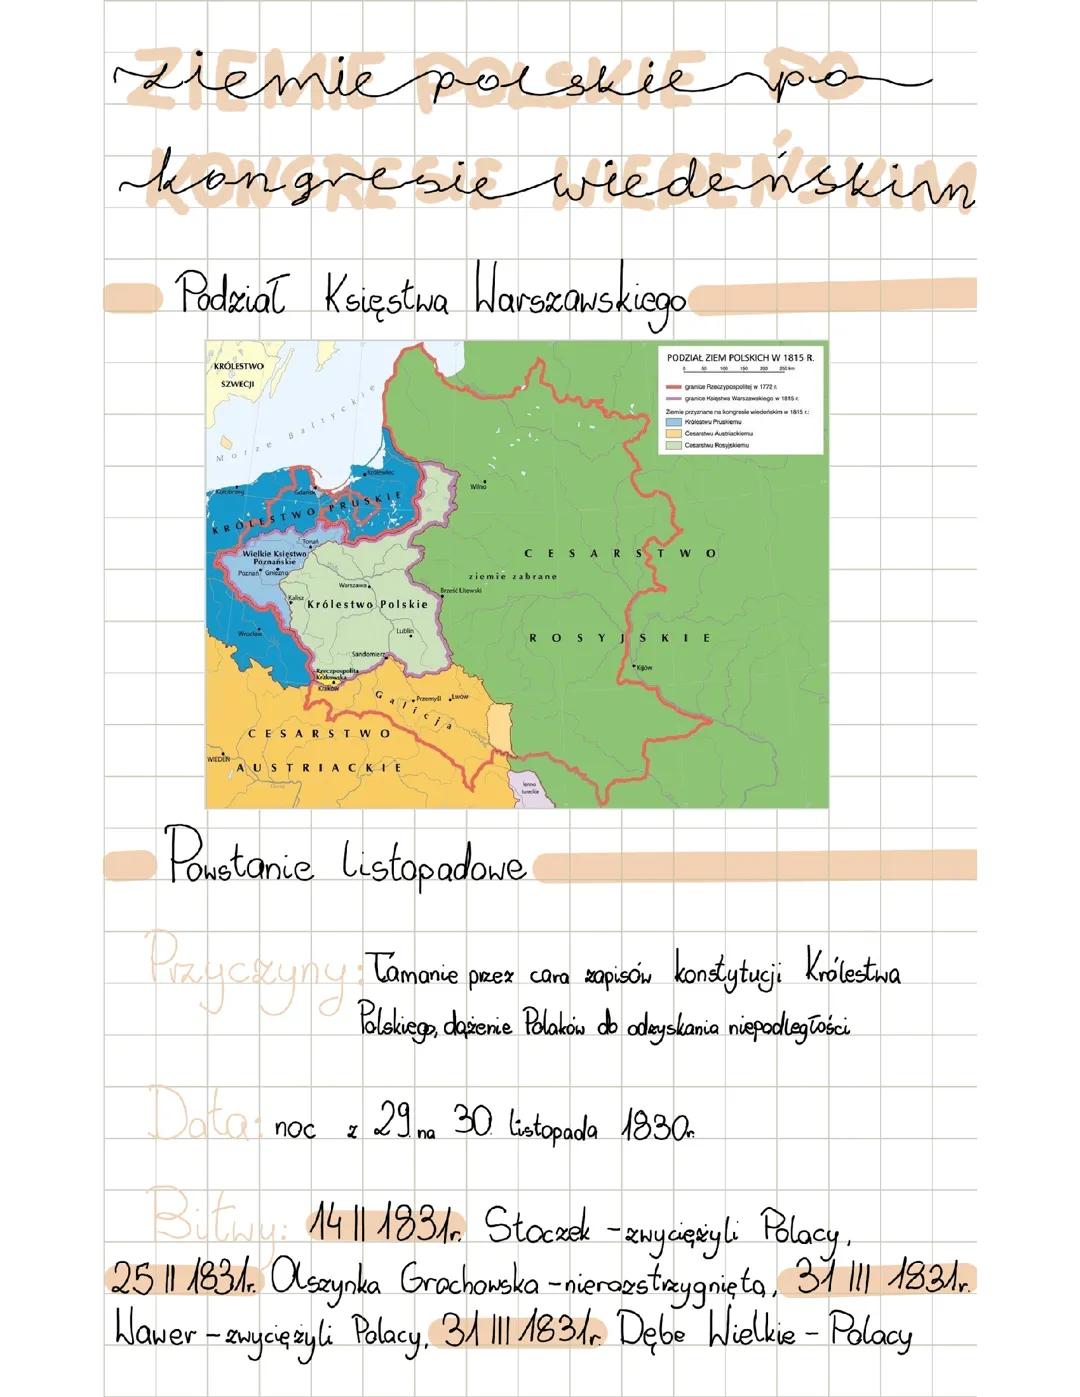 ziemie polskie po
ZIEMIE POLSKIE PO
kongresie wiedeńskim
KONGRESIE WIEDEŃSKIM
Podział Księstwa Warszawskiego
KRÓLESTWO
SZWECJI
PODZIAŁ ZIEM POLSKICH W 1815 R.
0 50 100 150 200 250 km
granice Rzeczypospolitej w 1772 r.
granice Księstwa Warszawskiego w 1815 r.
Ziemie przyznane na kongresie wiedeńskim w 1815 r.:
Królestwu Pruskiemu
Cesarstwu Austriackiemu
Cesarstwu Rosyjskiemu
Morze Bałtyckie
Królewiec
Kołobrzeg
Gdańsk
Wilno
KRÓLESTWO PRUSKIE
Toruń
Wielkie Księstwo
Poznańskie
CESARSTWO
Poznań Gniezno
ziemie zabrane
Warszawa
Brześć Litewski
Kalisz
Królestwo Polskie
Wrocław
Lublin
ROSYJSKIE
Sandomierz
Kijów
Rzeczpospolita
Krakowska
Kraków
Galicja
Przemyśl
Lwów
CESARSTWO
WIEDEŃ
AUSTRIACKIE
lenno
tureckie
Powstanie listopadowe
Przyczyny: Łamanie przez cara zapisów konstytucji Królestwa
Polskiego, dążenie Polaków do odzyskania niepodległości
Data: noc z 29 na 30 listopada 1830r.
Bitwy: 14 II 1831r. Stoczek - zwyciężyli Polacy,
25 II 1831r. Olszynka Grochowska - nierozstrzygnięta, 31 III 1831r.
Wawer - zwyciężyli Polacy, 31 III 1831r. Dębe Wielkie - Polacy